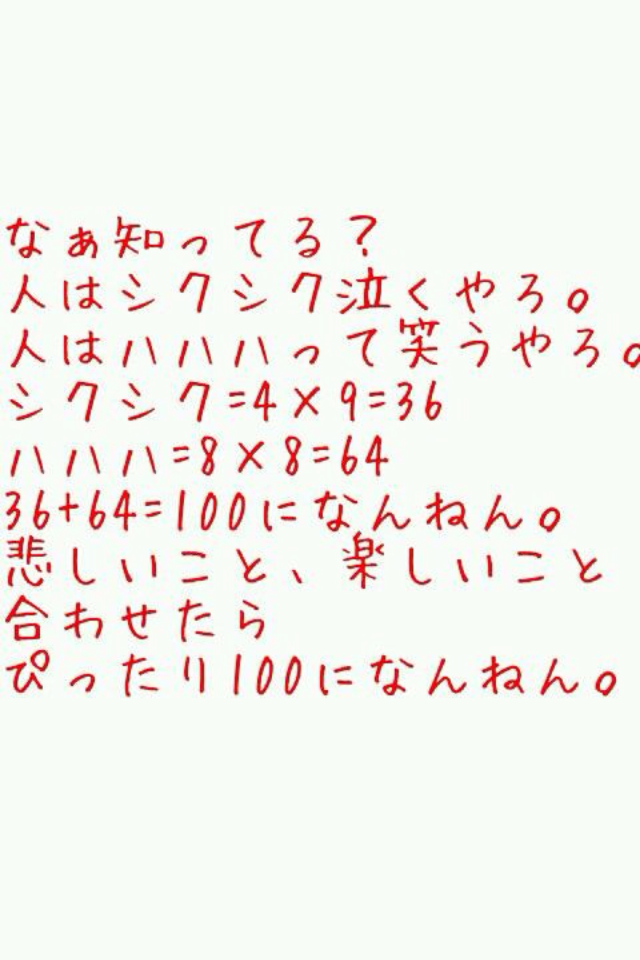 なぁ知ってる？
人はシクシク泣くやろ。
人はハハハって笑うやろ。
シクシク=4×9=36
ハハハ=8×8=64
36+64=100になんねん。
悲しいこと、楽しいこと
合わせたら
ぴったり100になんねん。